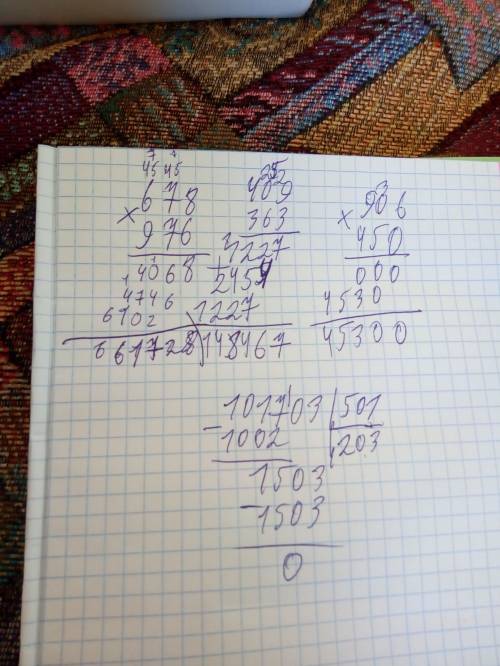 678
× 976
4068
4746
6102
661728
409
363
1227
2454
1227
148467
906
× 450
000
4530
45300
101703 | 501
- 1002 | 203
1503
- 1503
0